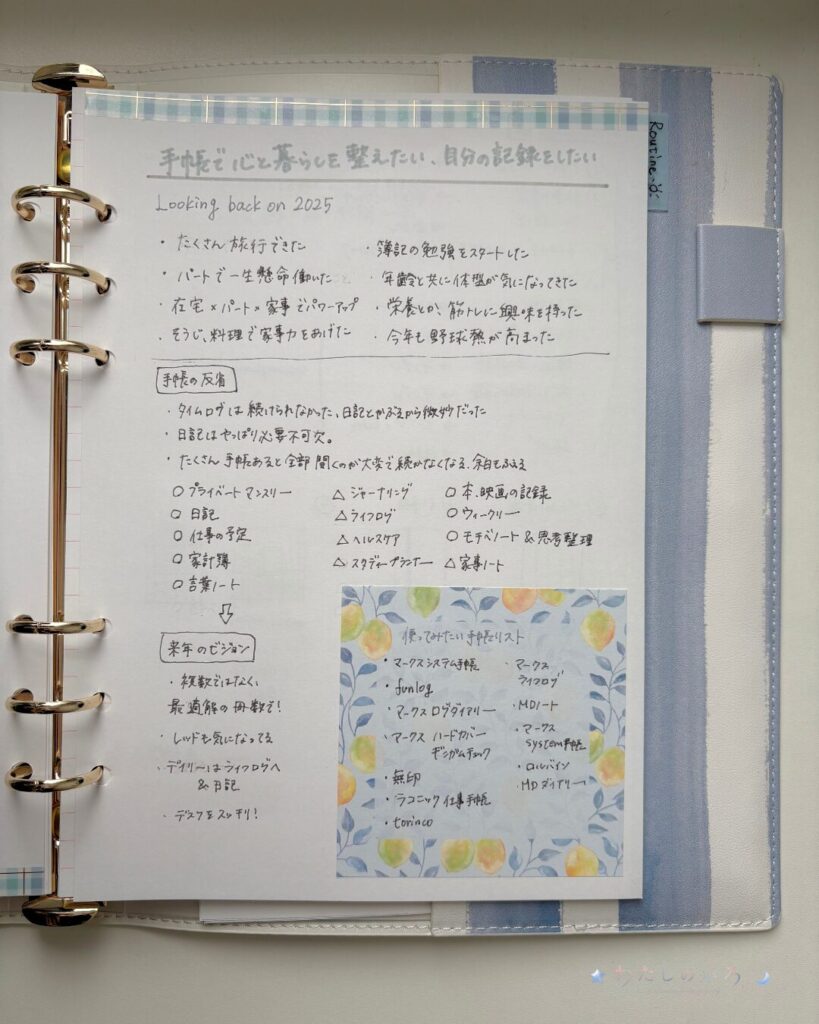 手帳で心と暮らしを整えたい、自分の記録をしたい
Routine
Looking back on 2025
・たくさん旅行できた
・パートで一生懸命働いた
・在宅×パート×家事でパワーアップ
・そうじ、料理で家事力をあげた
・簿記の勉強をスタートした
・年齢と共に体型が気になってきた
・栄養とか、筋トレに興味を持った
・今年も野球熱が高まった
手帳の反省
・タイムログは続けられなかった、日記とかぶるから微妙だった
・日記はやっぱり必要不可欠。
・たくさん手帳あると全部開くのが大変で続かなくなる、余白もふえる
○プライベートマンスリー
○日記
○仕事の予定
○家計簿
○言葉ノート
△ジャーナリング
△ライフログ
△ヘルスケア
△スタディープランナー
○本、映画の記録
○ウィークリー
○モチベノート&思考整理
△家事ノート
⇩
来年のビジョン
・複数ではなく、
最適解の冊数で!
・レッドも気になってる
・デイリーはライフログへ
&日記
・デスクをスッキリ!
使ってみたい手帳リスト
・マークスシステム手帳
・funlog
・マークスログダイアリー
・マークス ハードカバー
ギンガムチェック
・無印
・ラコニック仕事手帳
・torinco
・マークス
ライフログ
・MDノート
・マークス
system手帳
・ロルバーン
・MDダイアリー
わたしのいろ